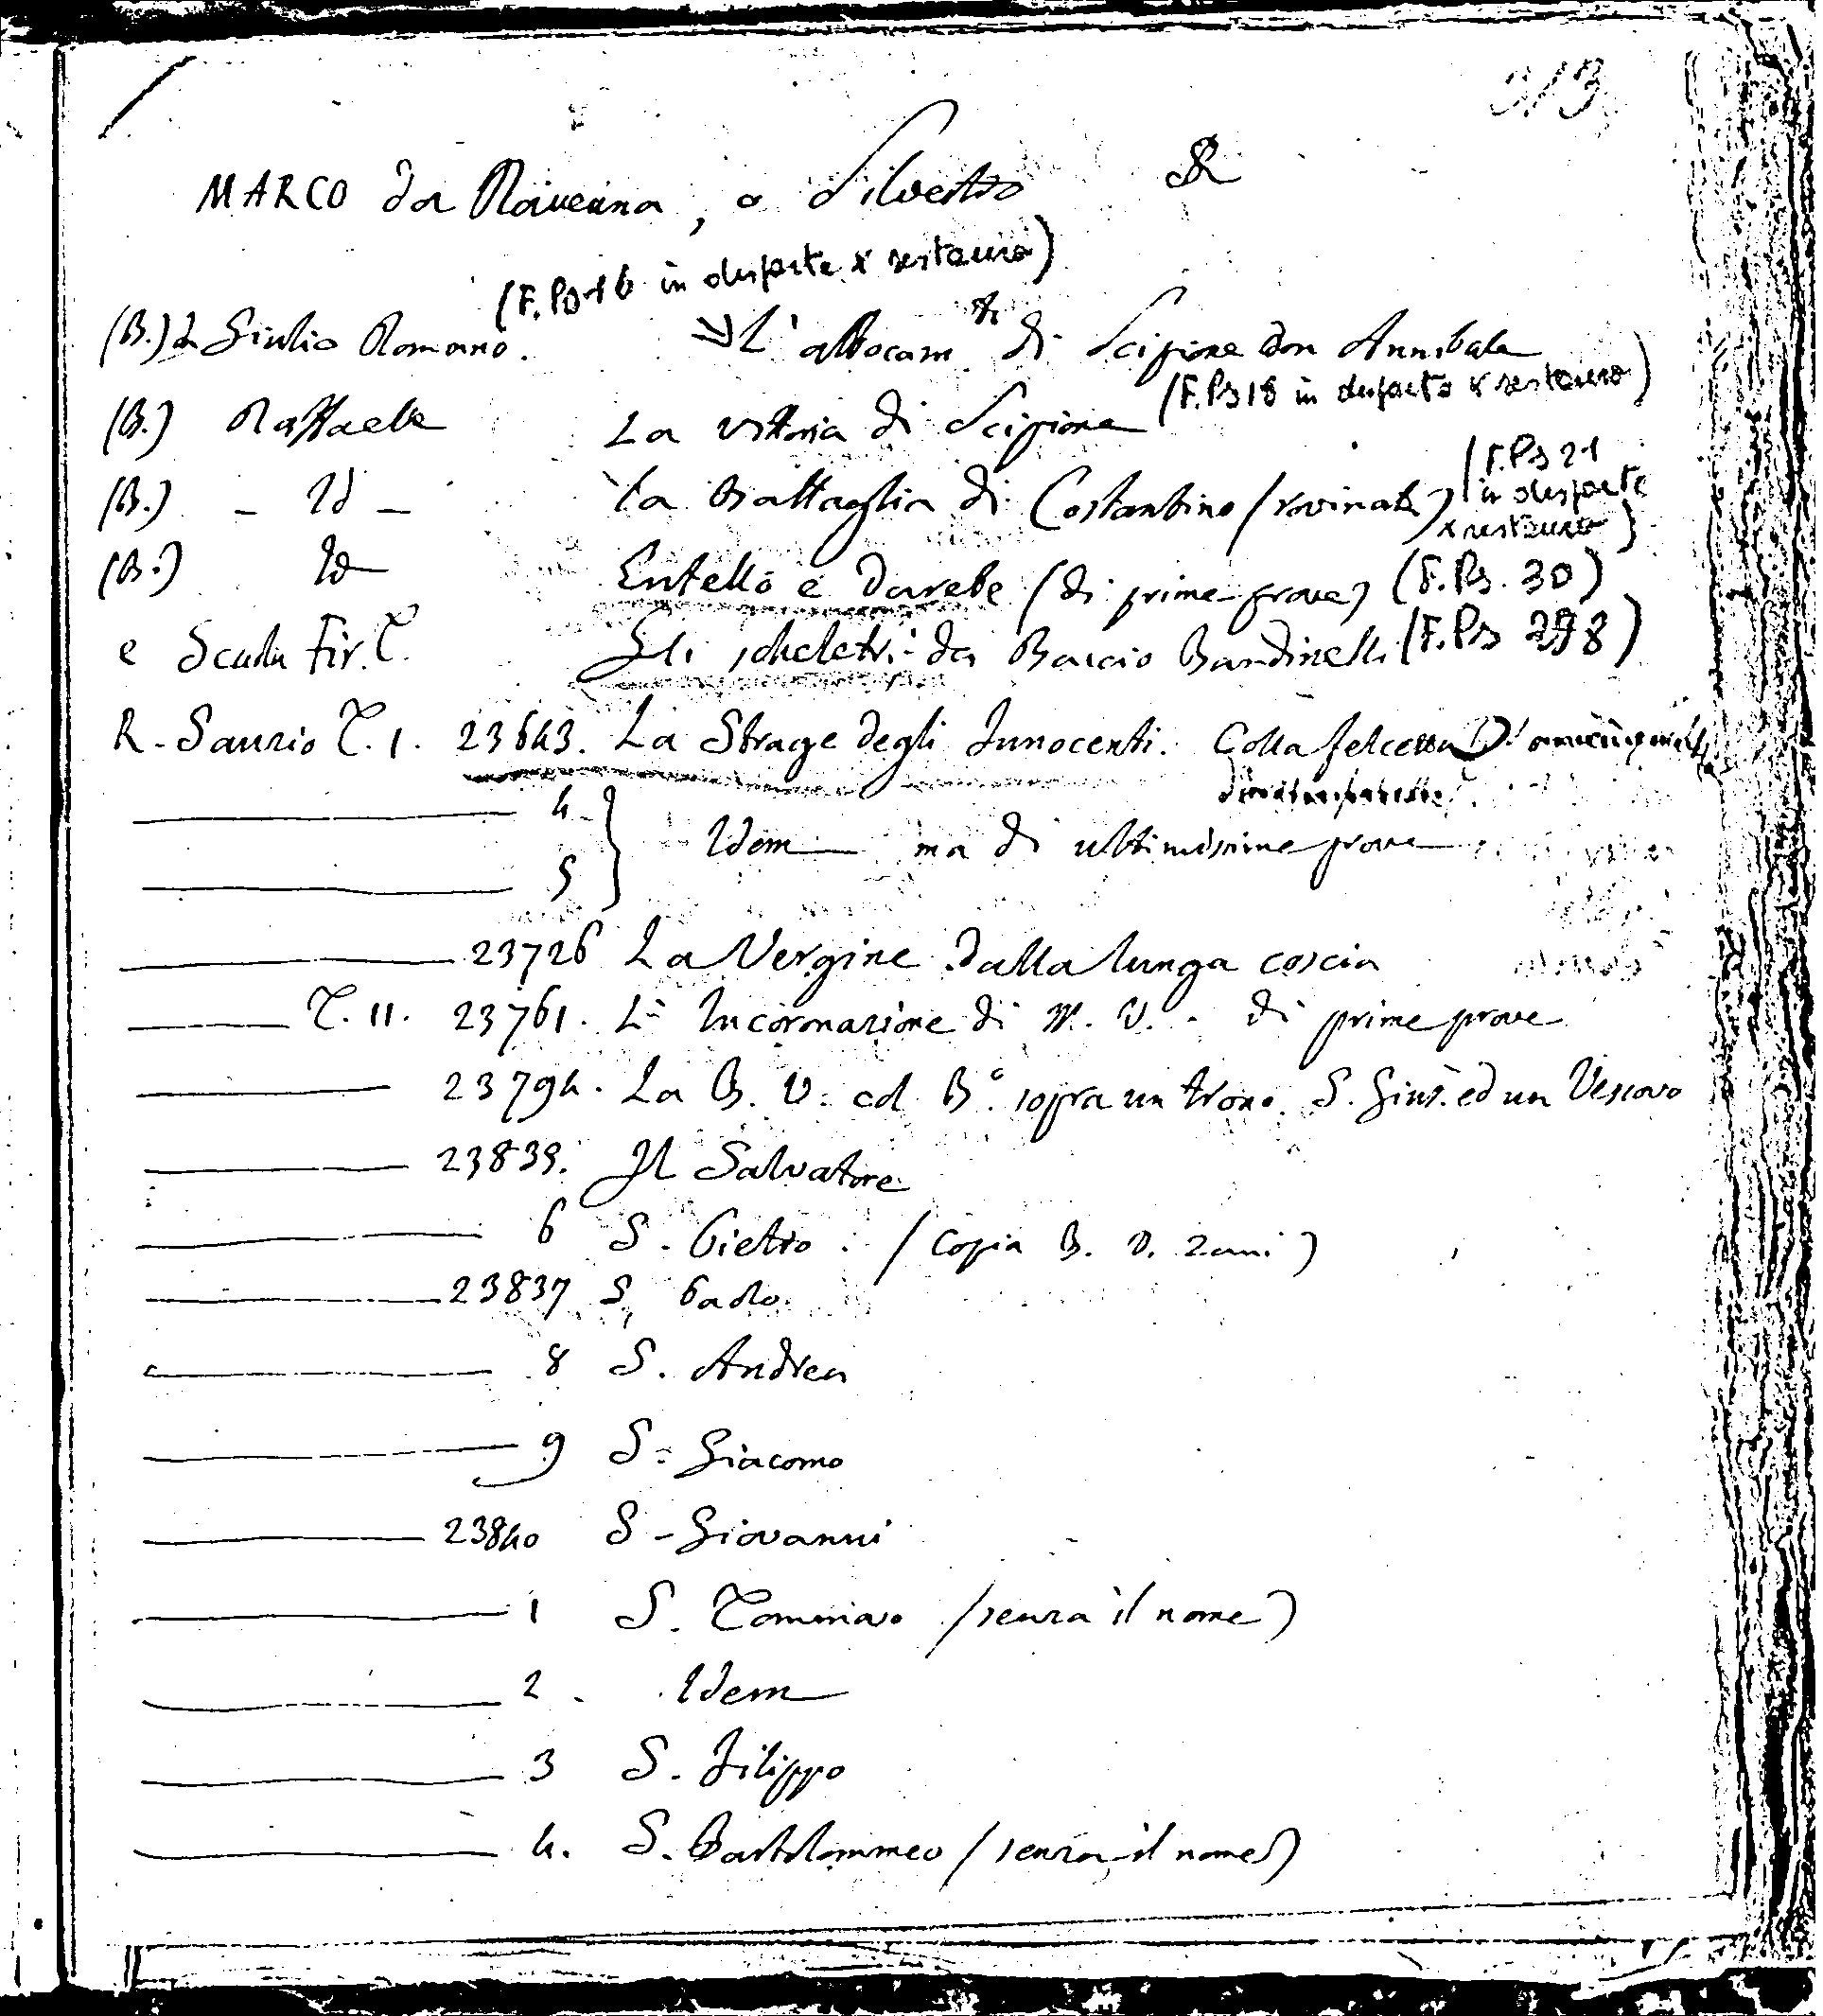 313
MARCO da Ravenna, o Silvestro SR
(F.PB 16 in disparte x restauro)
(B.) da Giulio Romano. L'abbocam.to di Scipione con Annibale
(B.) Raffaelle La vittoria di Scipione (F.PB 18 in disparte x restauro)
(B.) - Id - La Battaglia di Costantino (rovinata) (F.PB 21 in disparte x restauro)
(B.) Id Entello e Darete (di prime prove) (F.PB. 30)
e Scuola Fir. T. Gli scheletri da Baccio Bandinelli (F.PB 298)
R. Sanzio T. 1. 23643. La Strage degli Innocenti. Colla felcetta
4
5 } Idem ma di ultimissime prove
23726 La Vergine dalla lunga coscia
T. II. 23761. L'Incoronazione di M. V. - di prime prove
23794. La B. V. col B.o sopra un trono. S. Gius. ed un Vescovo
23835. Il Salvatore
6 S. Pietro. (Copia B. V. Zani)
23837 S. Paolo
8 S. Andrea
9 S. Giacomo
23840 S. Giovanni
1 S. Tommaso (senza il nome)
2. Idem
3 S. Filippo
4. S. Bartolommeo (senza il nome)